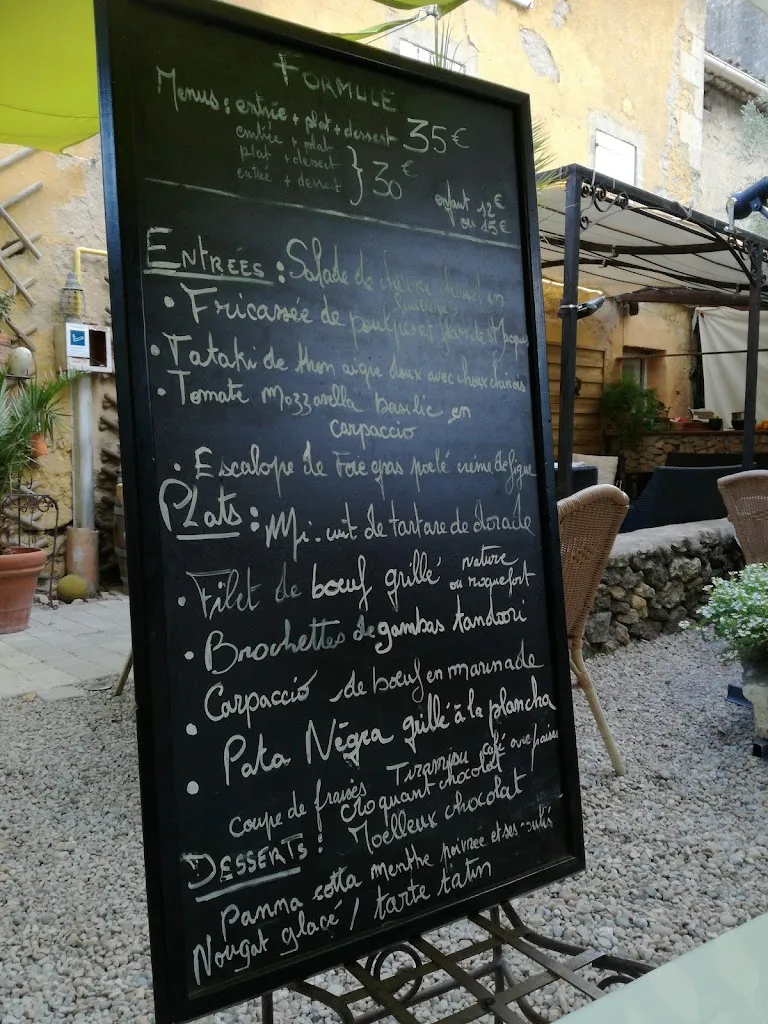 FORMULE
Menus : entrée + plat + dessert 35€
entrée + plat
plat + dessert
entrée + dessert } 30€
enfant 12€
ou 15€
ENTRÉES : Salade de chèvre en
• Fricassée de poulpes et St Jacques
• Tataki de thon aigre doux avec choux chinois
• Tomate Mozzarella basilic en
carpaccio
• Escalope de Foie gras poelé crème de figue
PLats : Mi-cuit de tartare de dorade
• Filet de bœuf grillé nature
ou roquefort
• Brochettes de gambas tandoori
• Carpaccio de bœuf en marinade
• Pata Nègra grillé à la plancha
coupe de fraises Tiramisu café avec
Croquant chocolat
DESSERTS : Moelleux chocolat
Panna cotta menthe poivrée et ses coulis
Nougat glacé / tarte tatin